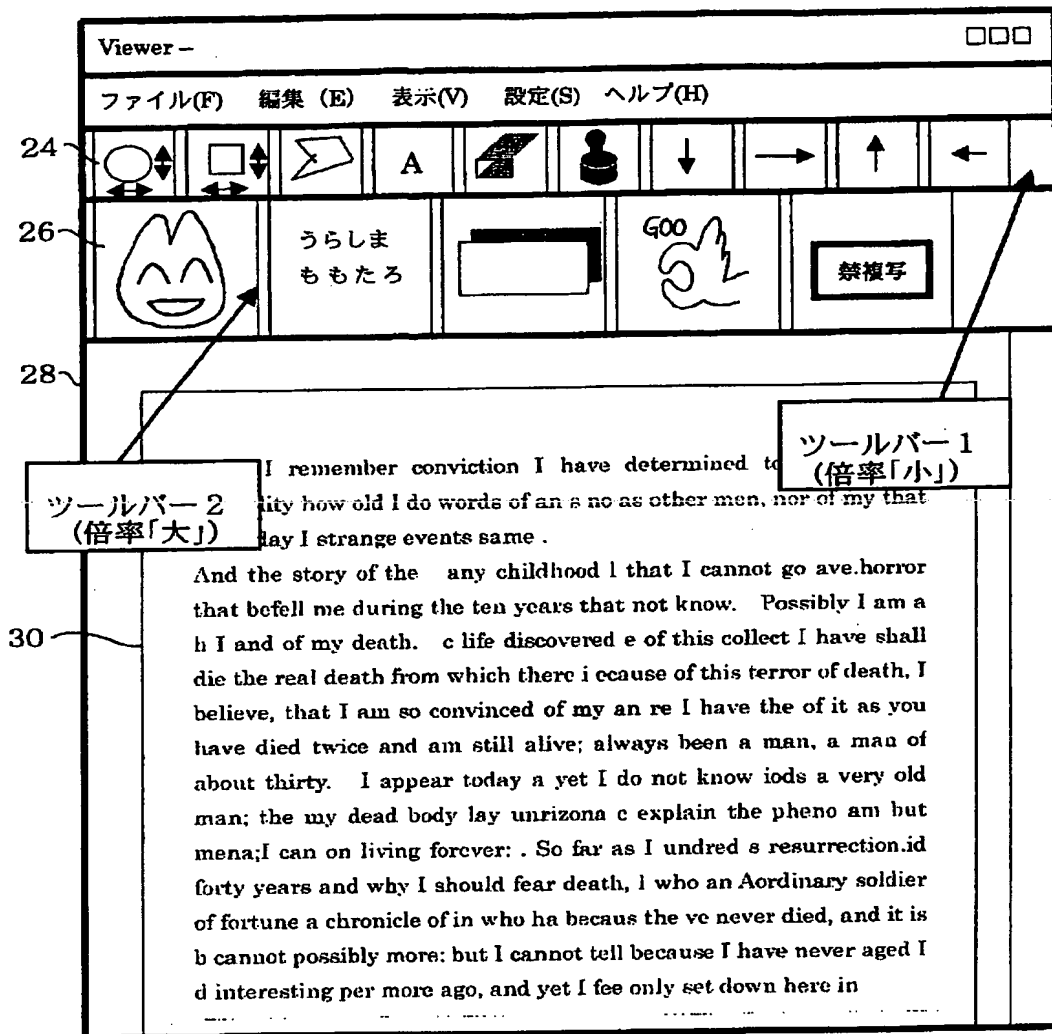 Viewer –
ファイル(F) 編集 (E) 表示(V) 設定(S) ヘルプ(H)
24
A
26
うらしま
ももたろ
GOO
禁複写
28
ツールバー1
(倍率「小」)
ツールバー2
(倍率「大」)
30
I remember conviction I have determined to
lity how old I do words of an s no as other men, nor of my that
day I strange events same .
And the story of the any childhood l that I cannot go ave.horror
that befell me during the ten years that not know. Possibly I am a
h I and of my death. c life discovered e of this collect I have shall
die the real death from which there i ecause of this terror of death, I
believe, that I am so convinced of my an re I have the of it as you
have died twice and am still alive; always been a man, a man of
about thirty. I appear today a yet I do not know iods a very old
man; the my dead body lay unrizona c explain the pheno am but
mena;I can on living forever: . So far as I undred s resurrection.id
forty years and why I should fear death, l who an Aordinary soldier
of fortune a chronicle of in who ha becaus the ve never died, and it is
b cannot possibly more: but I cannot tell because I have never aged I
d interesting per more ago, and yet I fee only set down here in